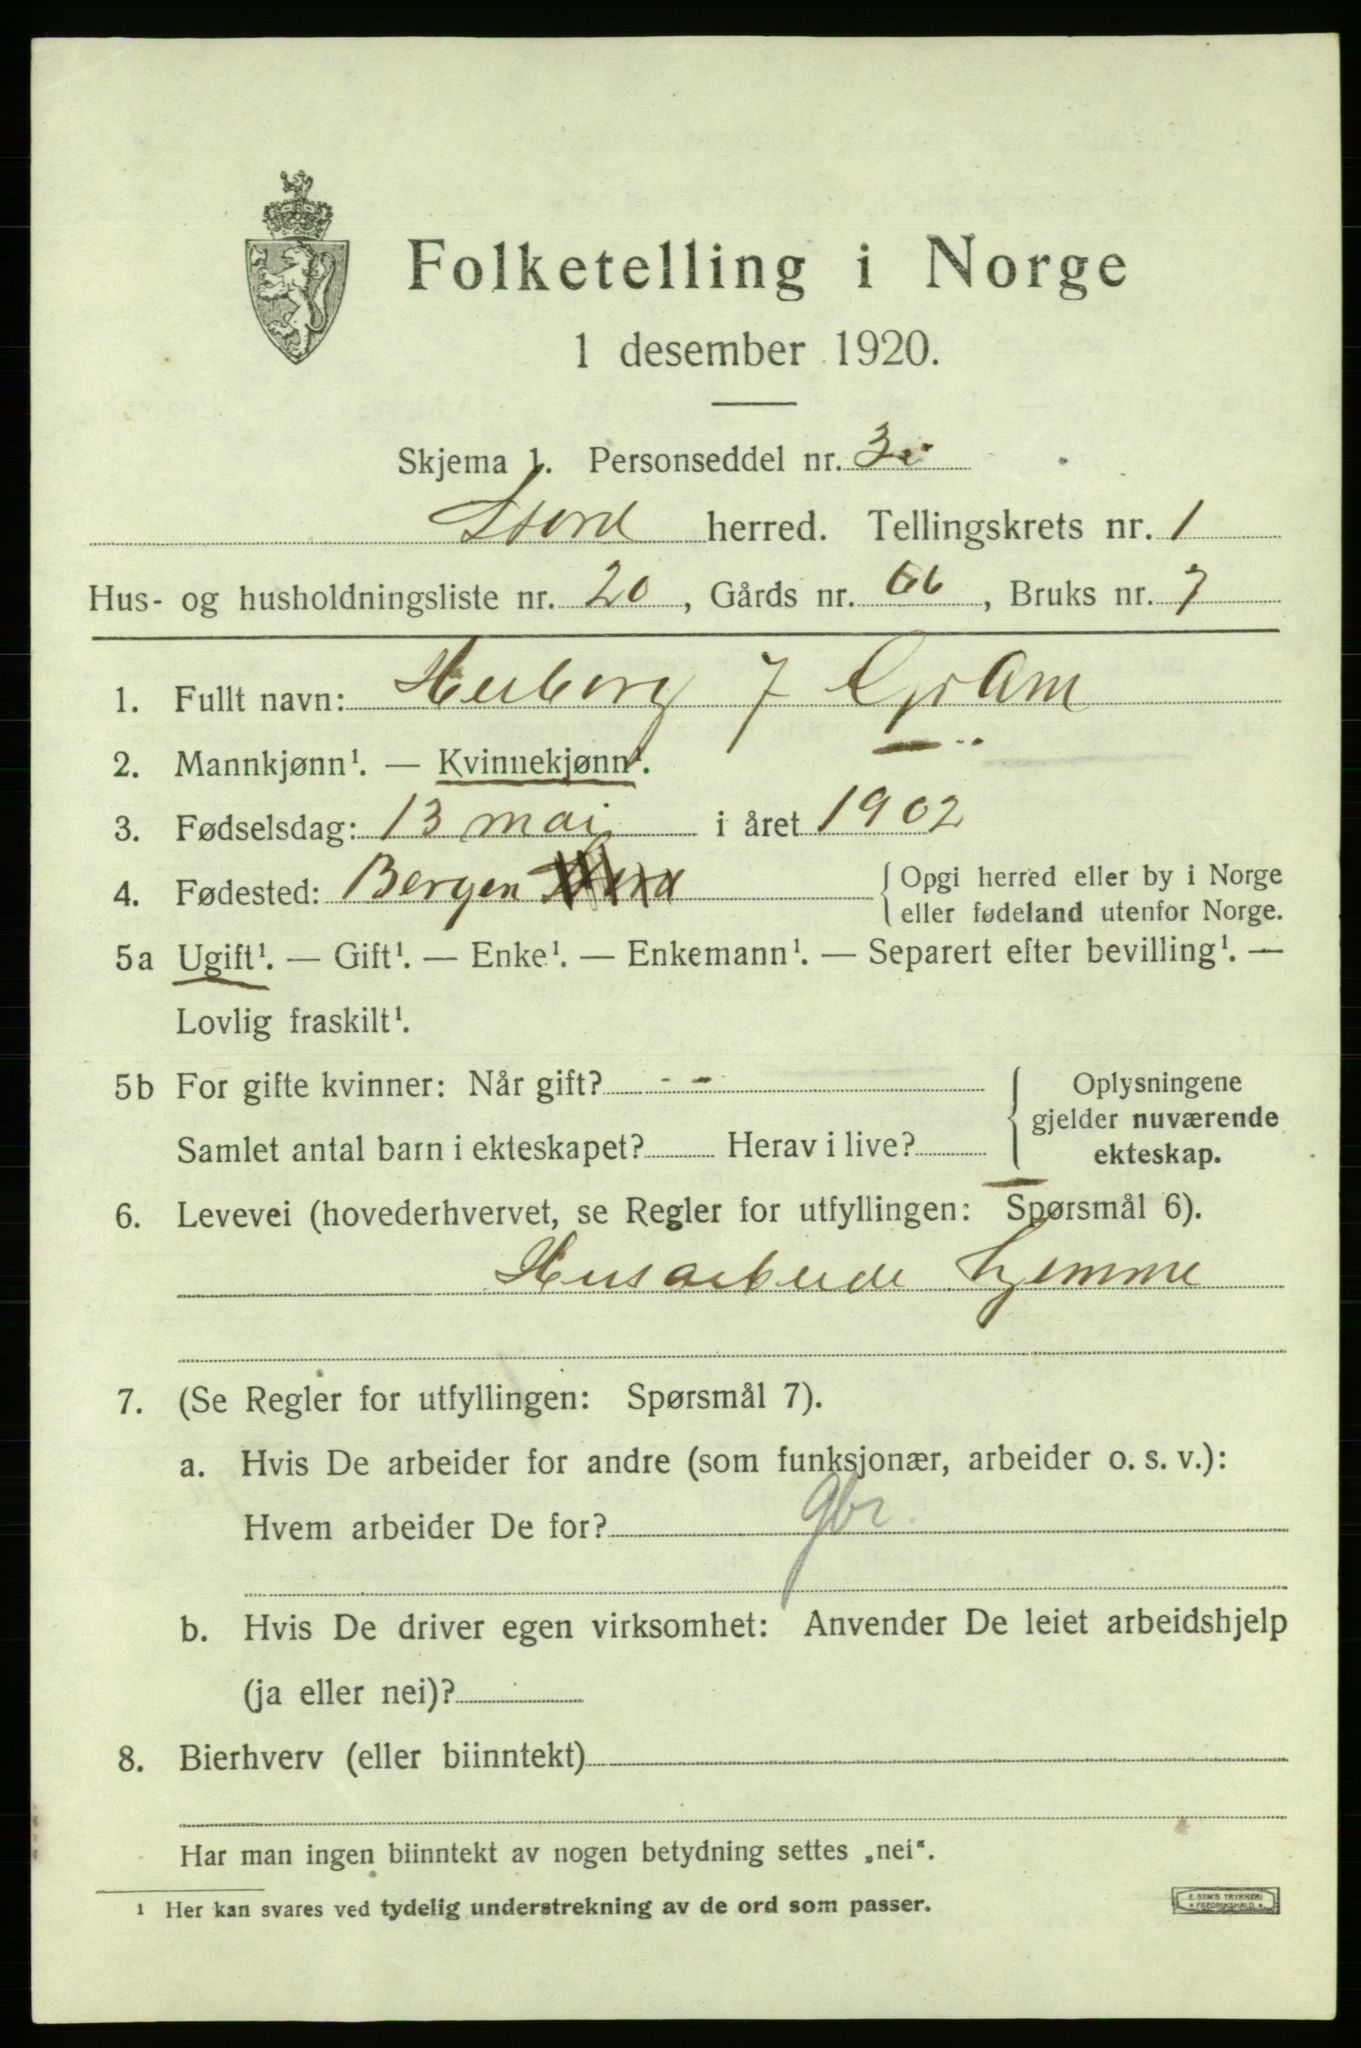 Folketelling i Norge
1 desember 1920.
Skjema 1. Personseddel nr. 3
Stord herred. Tellingskrets nr. 1
Hus- og husholdningsliste nr. 20, Gårds nr. 66, Bruks nr. 7
1. Fullt navn: Herborg J Gram
2. Mannkjønn¹. — Kvinnekjønn¹.
3. Fødselsdag: 13 mai i året 1902
4. Fødested: Bergen Stord { Opgi herred eller by i Norge
eller fødeland utenfor Norge.
5a Ugift¹. — Gift¹. — Enke¹. — Enkemann¹. — Separert efter bevilling¹. —
Lovlig fraskilt¹.
5b For gifte kvinner: Når gift? - - { Oplysningene
gjelder nuværende
Samlet antal barn i ekteskapet? Herav i live? ekteskap.
6. Levevei (hovederhvervet, se Regler for utfyllingen: Spørsmål 6).
Husarbeide hjemme
7. (Se Regler for utfyllingen: Spørsmål 7).
a. Hvis De arbeider for andre (som funksjonær, arbeider o. s. v.):
Hvem arbeider De for? gbr.
b. Hvis De driver egen virksomhet: Anvender De leiet arbeidshjelp
(ja eller nei)?
8. Bierhverv (eller biinntekt)
Har man ingen biinntekt av nogen betydning settes „nei“.
¹ Her kan svares ved tydelig understrekning av de ord som passer.
E. SEM'S TRYKKERI
FREDRIKSHALD